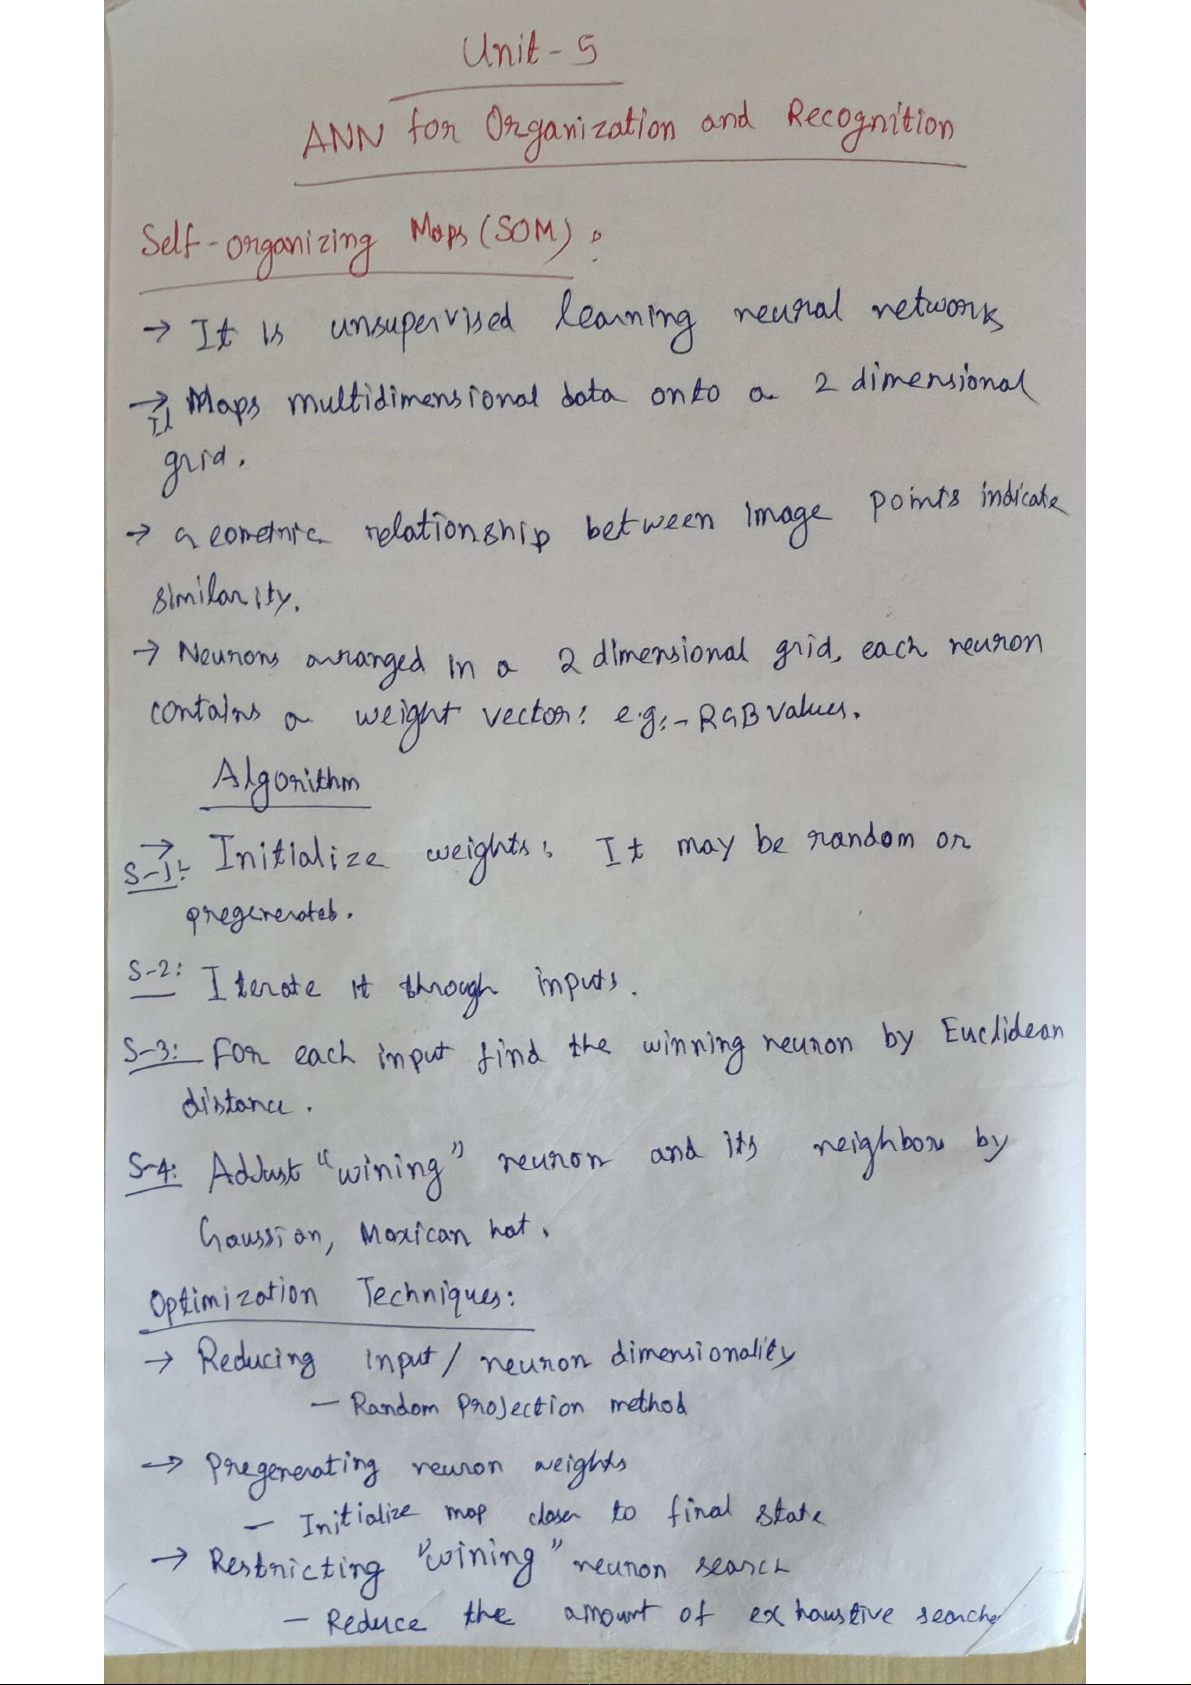 Unit-5
ANN for Organization and Recognition
Self-organizing Maps (SOM):
→ It is unsupervised learning neural network
→ It Maps multidimensional data onto a 2 dimensional
grid.
→ Geometric relationship between image points indicate
similarity.
→ Neurons arranged in a 2 dimensional grid, each neuron
contains a weight vector: e.g:- RGB values.
Algorithm
→ S-1: Initialize weights: It may be random or
pregenerated.
S-2: Iterate it through inputs.
S-3: For each input find the winning neuron by Euclidean
distance.
S-4: Adjust "wining" neuron and its neighbors by
Gaussian, Maxican hat.
Optimization Techniques:
→ Reducing input / neuron dimensionality
- Random Projection method
→ Pregenerating neuron weights
- Initialize map closer to final state
→ Restricting "wining" neuron search
- Reduce the amount of exhaustive searche